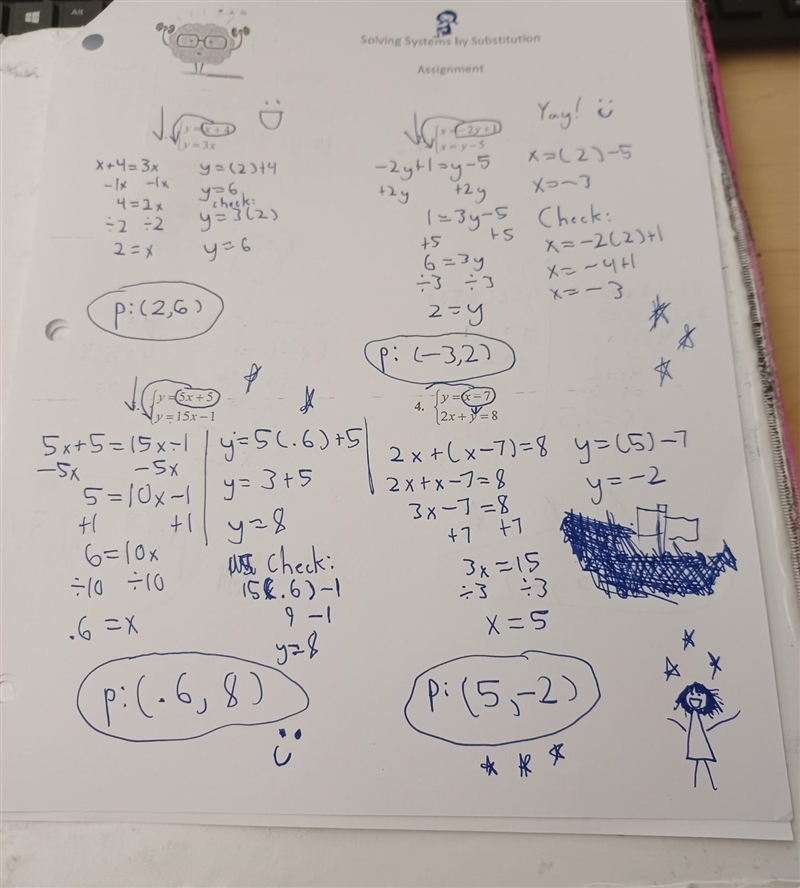 Alt
Solving Systems by Substitution
Assignment
y = x + 4
y = 3x
x+4=3x
-1x -1x
4=2x
÷2 ÷2
2=x
y=(2)+4
y=6
check:
y=3(2)
y=6
p:(2,6)
x = -2y + 1
x = y - 5
-2y+1=y-5
+2y +2y
1=3y-5
+5 +5
6=3y
÷3 ÷3
2=y
Yay!
x=(2)-5
x=-3
Check:
x=-2(2)+1
x=-4+1
x=-3
p:(-3,2)
y = 5x + 5
y = 15x - 1
5x+5=15x-1
-5x -5x
5=10x-1
+1 +1
6=10x
÷10 ÷10
.6=x
y=5(.6)+5
y=3+5
y=8
Check:
15(.6)-1
9-1
y=8
p:(.6, 8)
4. y = x - 7
2x + y = 8
2x+(x-7)=8
2x+x-7=8
3x-7=8
+7 +7
3x=15
÷3 ÷3
x=5
y=(5)-7
y=-2
p:(5,-2)